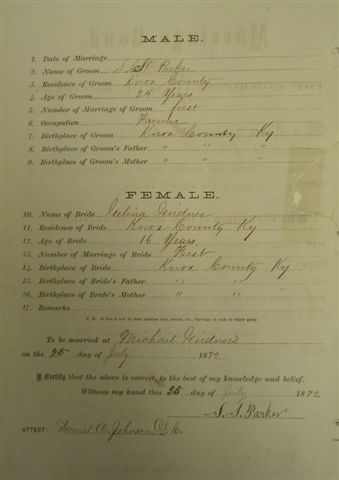 MALE.
1. Date of Marriage
2. Name of Groom Parker
3. Residence of Groom Knox County
3. Age of Groom 24 Years
5. Number of Marriage of Groom first
6. Occupation Farmer
7. Birthplace of Groom Knox County Ky
8. Birthplace of Groom's Father " " "
9. Birthplace of Groom's Mother " " "
FEMALE.
10. Name of Bride
11. Residence of Bride Knox County Ky
12. Age of Bride 16 Years
13. Number of Marriage of Bride First
14. Birthplace of Bride Knox County Ky
15. Birthplace of Bride's Father " " "
16. Birthplace of Bride's Mother " " "
17. Remarks
To be married at Michael
on the 25 day of July 1872
I Certify that the above is correct, to the best of my knowledge and belief.
Witness my hand this 25 day of July 1872,
Parker
ATTEST: Daniel Johnson D.C.